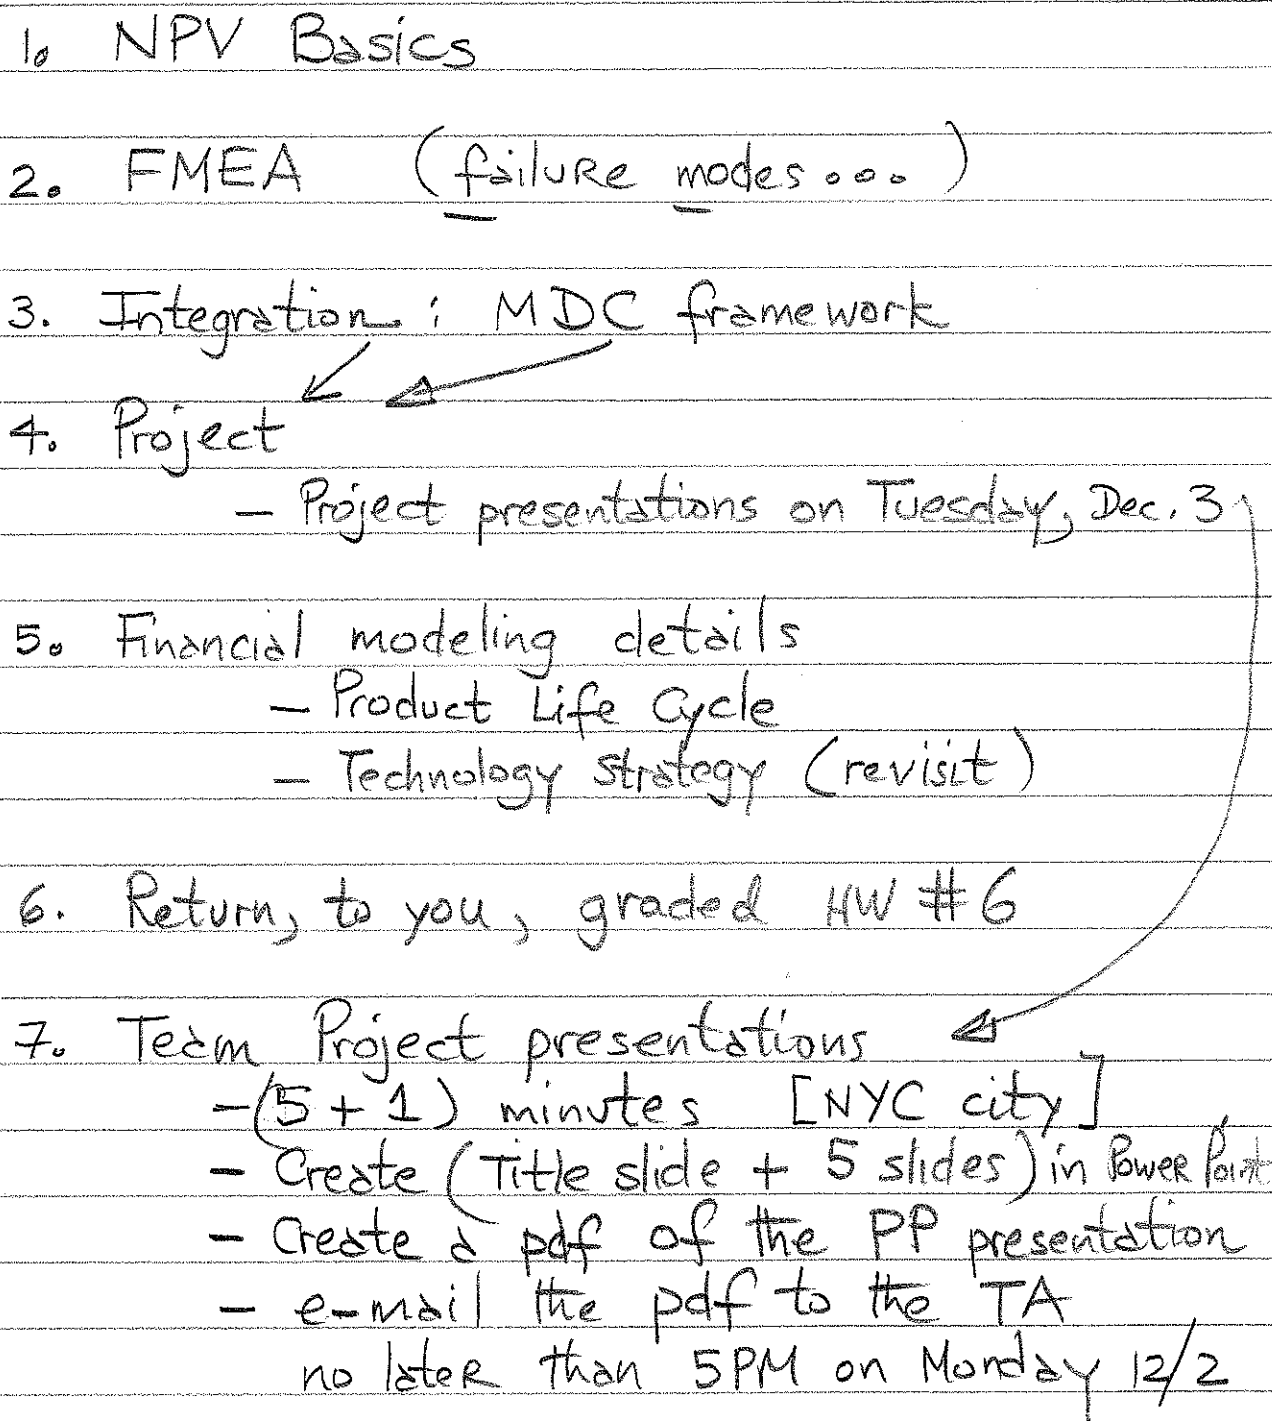 1. NPV Basics
2. FMEA (failure modes...)
3. Integration : MDC framework
4. Project
- Project presentations on Tuesday, Dec. 3
5. Financial modeling details
- Product Life Cycle
- Technology Strategy (revisit)
6. Return, to you, graded HW #6
7. Team Project presentations
- (5 + 1) minutes [NYC city]
- Create (Title slide + 5 slides) in Power Point
- Create a pdf of the PP presentation
- e-mail the pdf to the TA
no later than 5PM on Monday 12/2